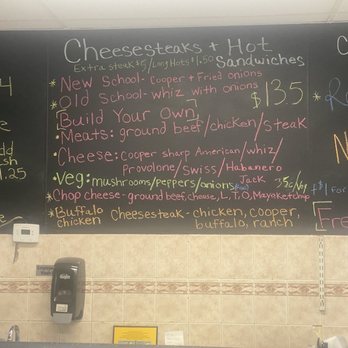 Cheesesteaks + Hot
Extra steak $5/Long Hots $1.50 Sandwiches
* New School- Cooper + Fried onions
* Old School- whiz with onions
$13.5
[Build Your Own]
• Meats: ground beef/chicken/steak
• Cheese: Cooper sharp American/whiz/
Provolone/Swiss/Habanero
Jack
• veg: mushrooms/peppers/onions
* Chop cheese- ground beef, cheese, L, T, O, Mayo Ketchup
* Buffalo chicken Cheesesteak - chicken, cooper,
buffalo, ranch
1.25
f $1 for